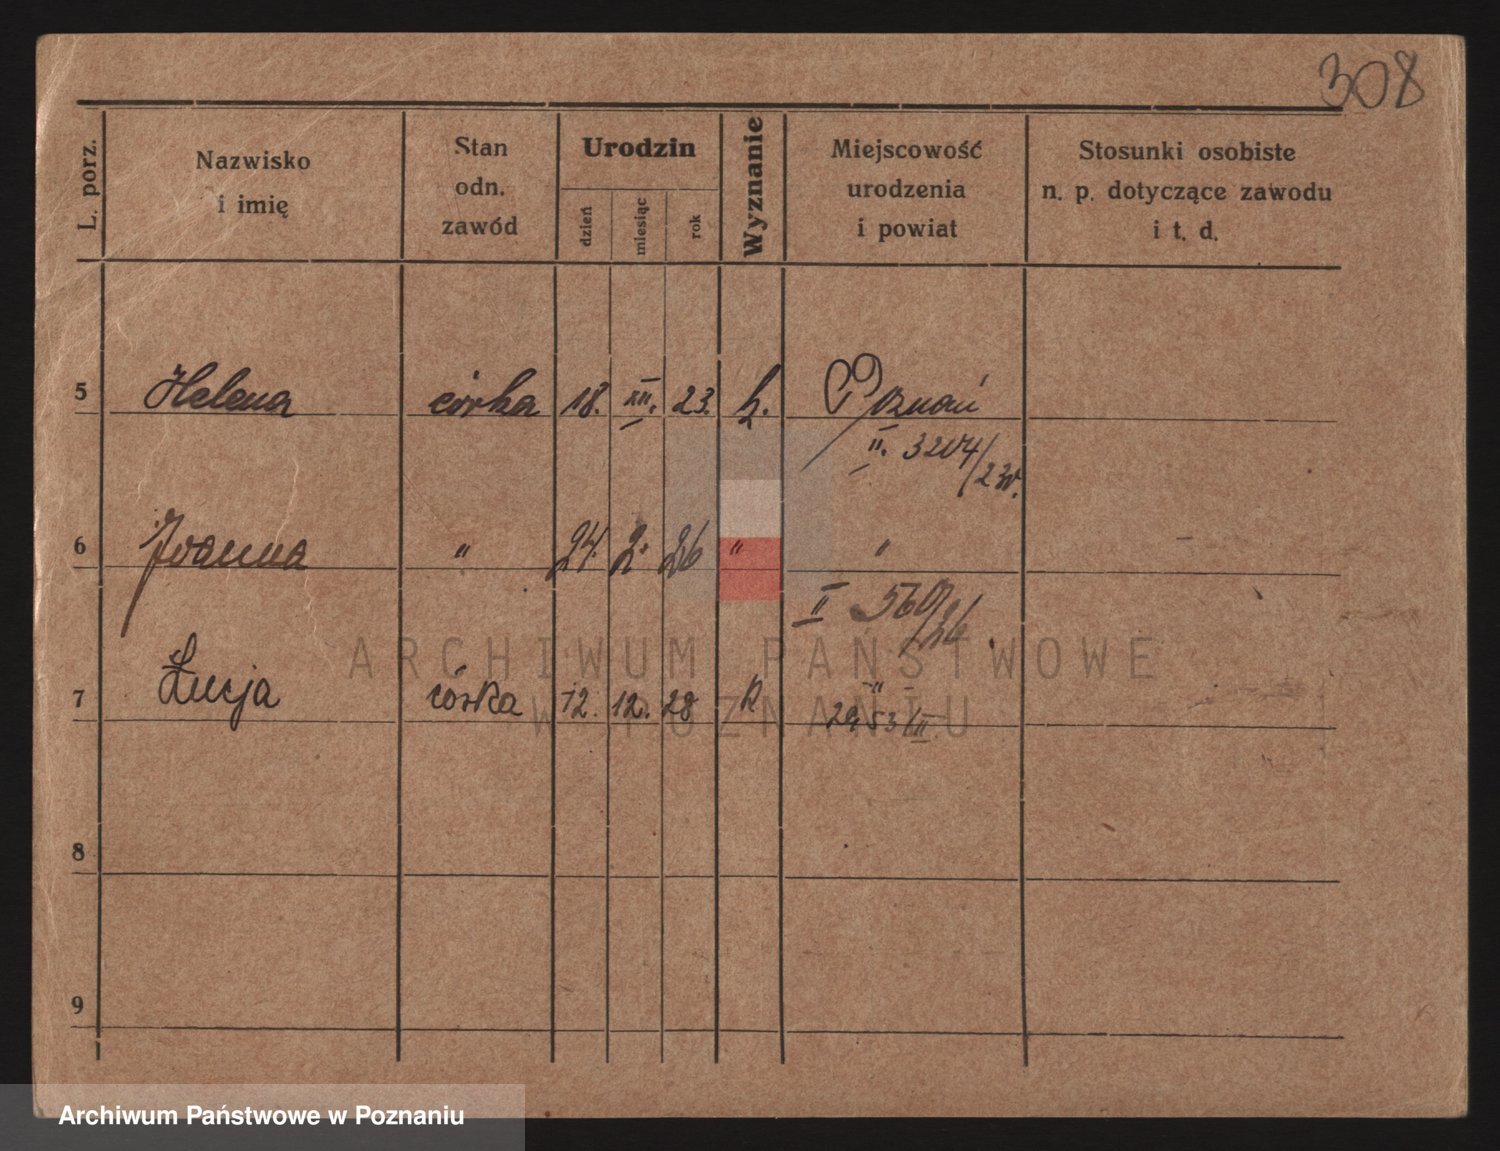 308
L. porz.
Nazwisko
i imię
Stan
odn.
zawód
Urodzin
dzień
miesiąc
rok
Wyznanie
Miejscowość
urodzenia
i powiat
Stosunki osobiste
n. p. dotyczące zawodu
i t. d.
5 Helena córka 18. XII. 23. k. Poznań
II. 3204/23
6 Joanna " 24. 2. 26 " "
II 560/26
7 Łucja córka 12. 12. 28 k "
2953/II
8
9
ARCHIWUM PAŃSTWOWE
W POZNANIU
Archiwum Państwowe w Poznaniu